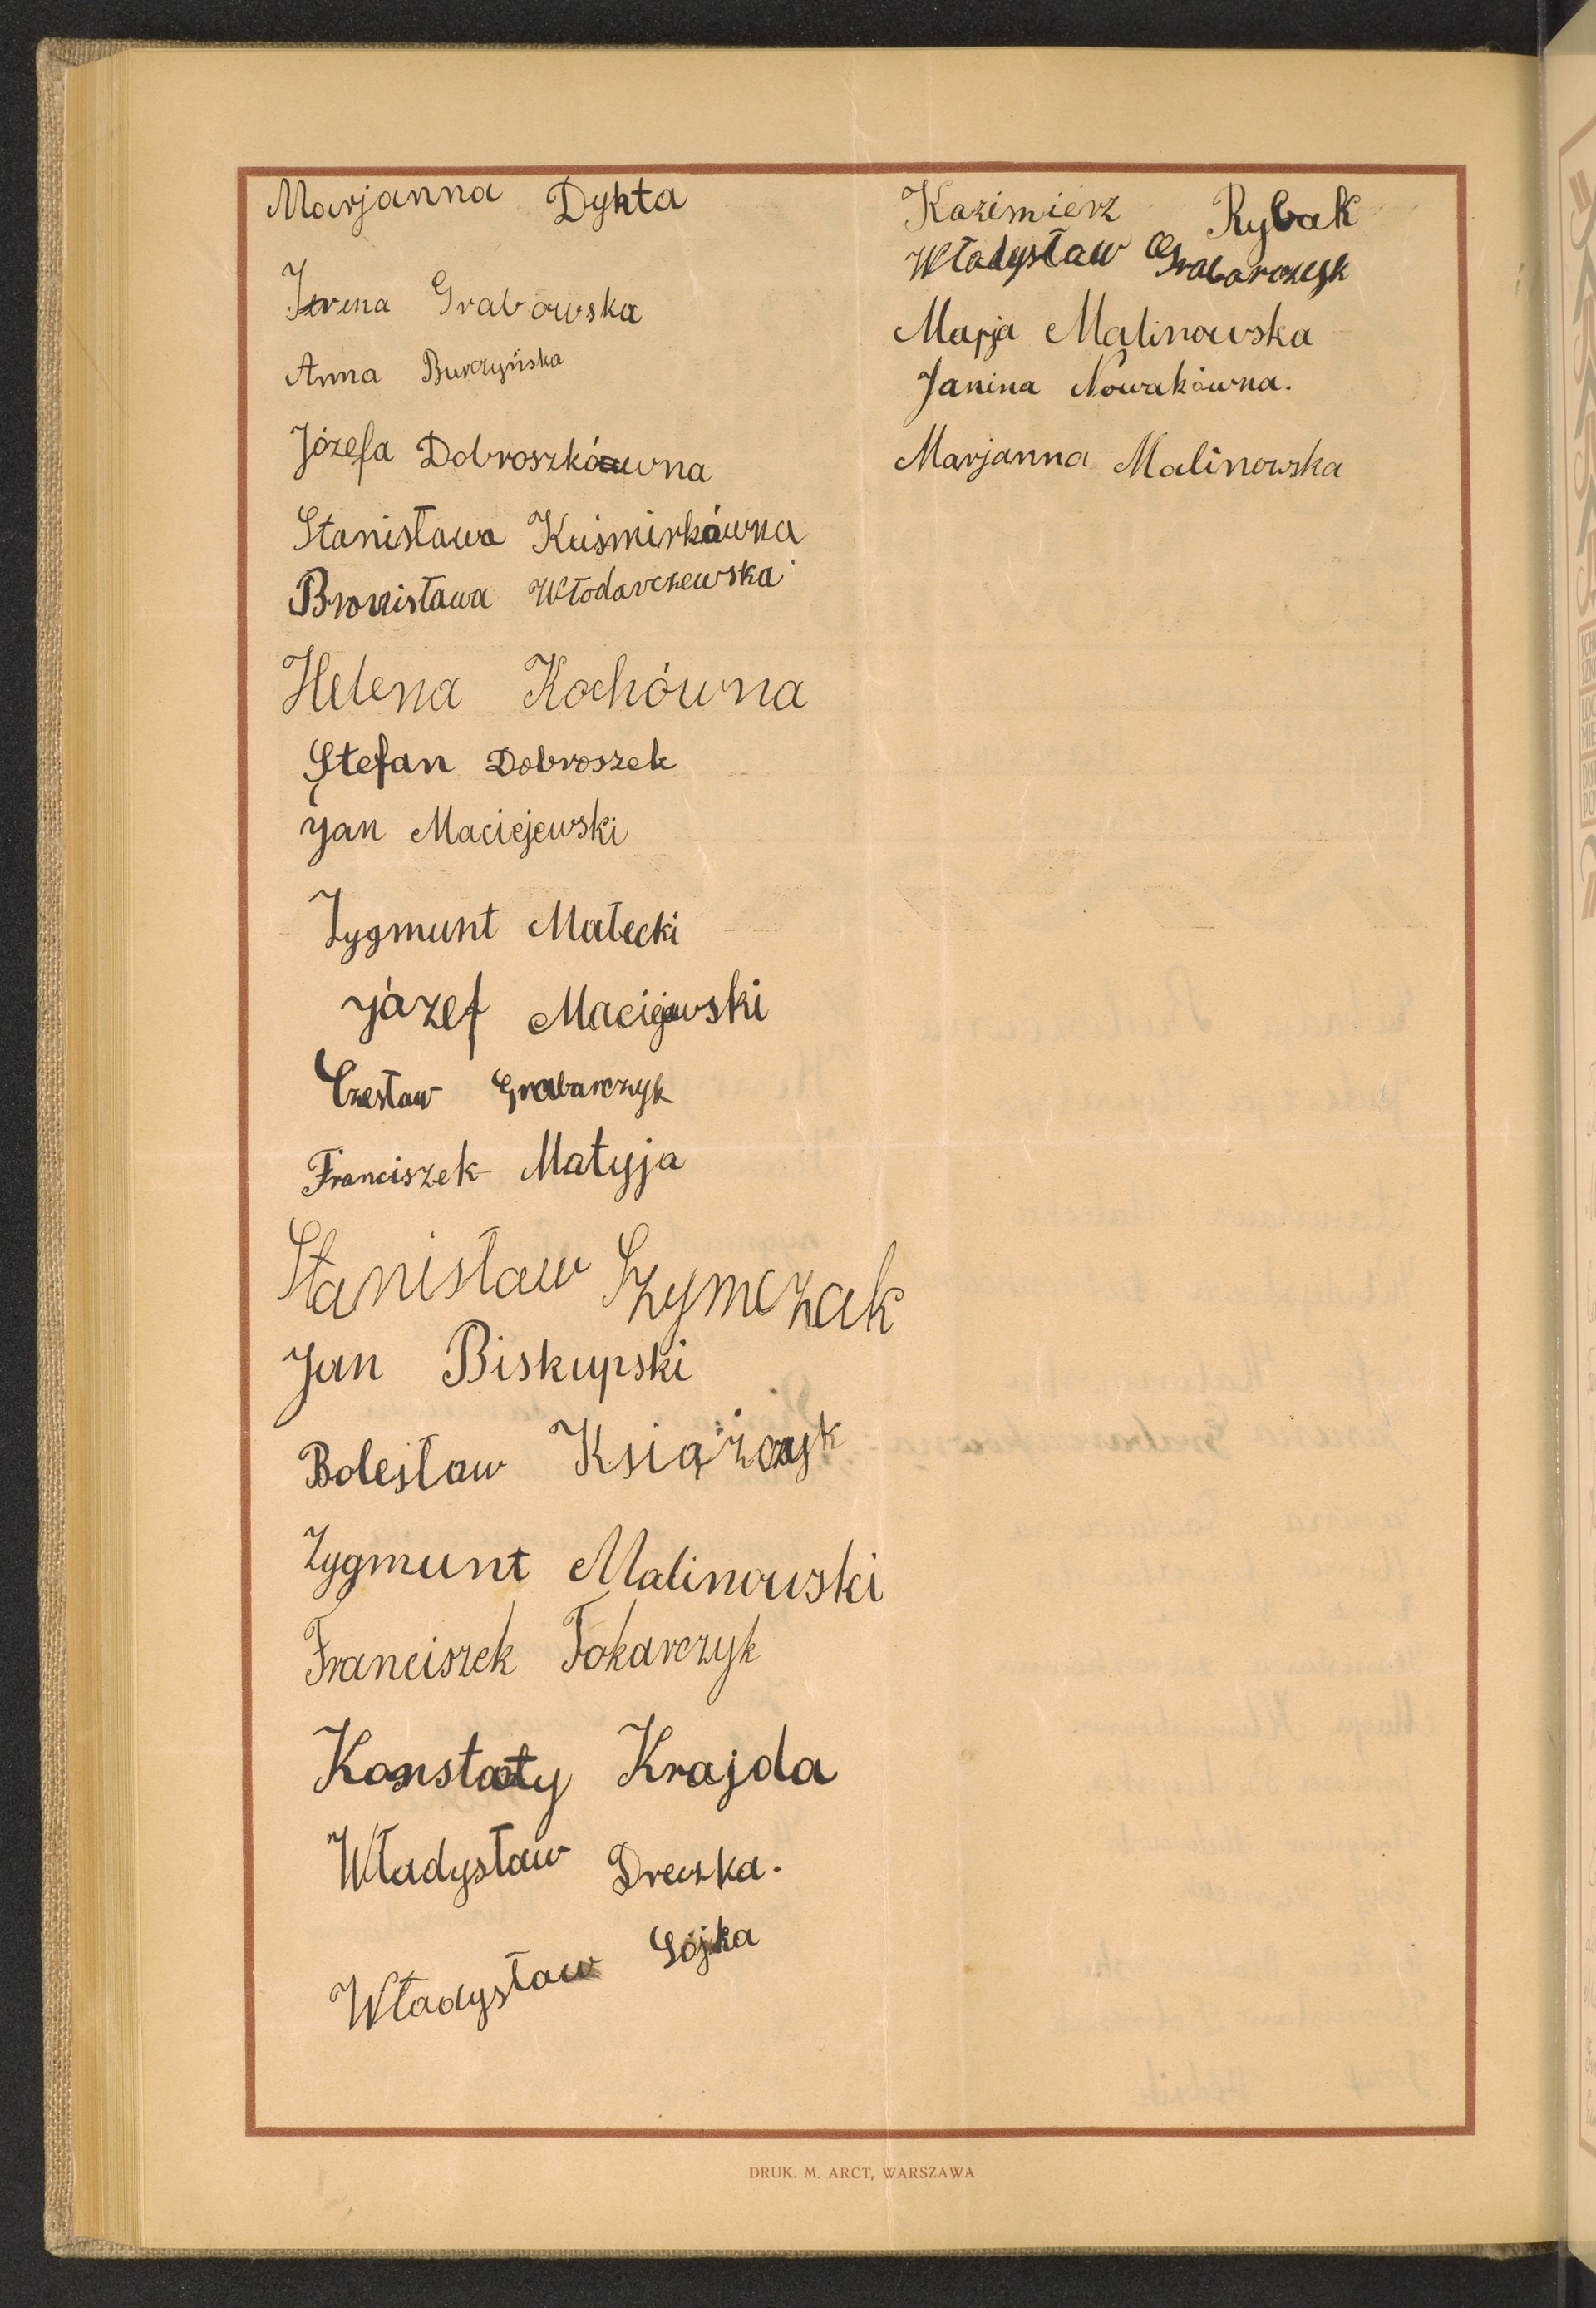 Marjanna Dykta
Irena Grabowska
Anna Burczyńska
Józefa Dobroszkówna
Stanisława Kuśmirkówna
Bronisława Włodarczewska
Helena Kochówna
Stefan Dobroszek
Jan Maciejewski
Zygmunt Małecki
Józef Maciejewski
Czesław Grabarczyk
Franciszek Matyja
Stanisław Szymczak
Jan Biskupski
Bolesław Książczyk
Zygmunt Malinowski
Franciszek Tokarczyk
Krajda
Władysław
Władysław Sójka
Kazimierz Rybak
Władysław Grabarczyk
Marja Malinowska
Janina Nowakówna.
Marjanna Malinowska
DRUK. M. ARCT, WARSZAWA